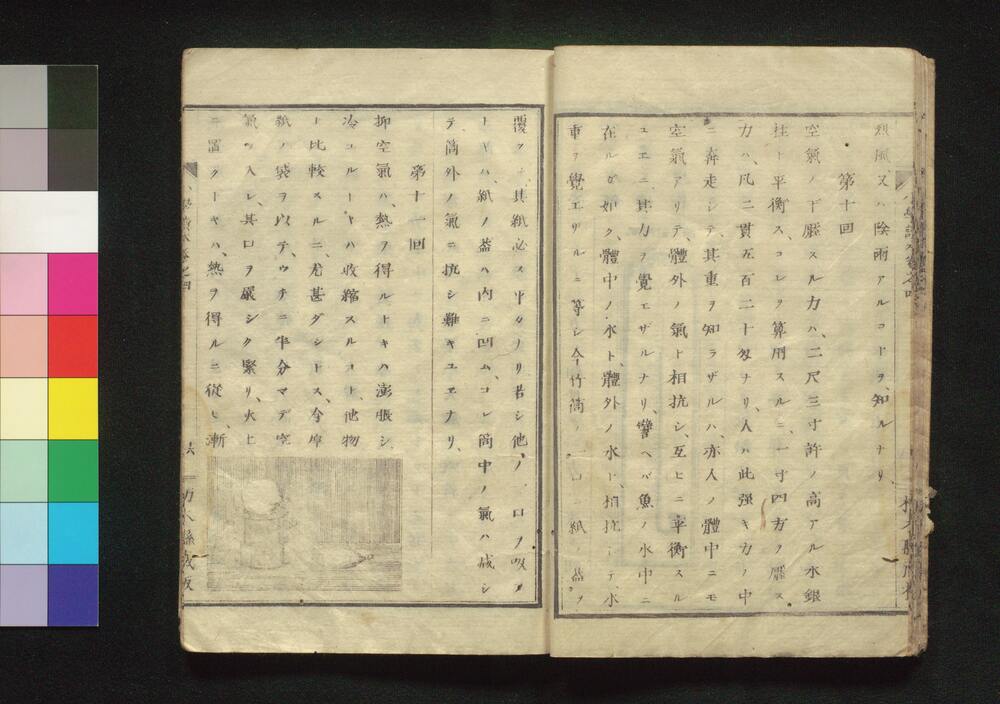 烈風又ハ陰雨アルコトヲ、知ルナリ、
第十回
空氣ノ下壓スル力ハ、二尺三寸許ノ高アル水銀
柱ト平衡ス、コレヲ算用スルニ、一寸四方ノ壓ス
力ハ、凡二貫五百二十匁ナリ、人ハ此强キ力ノ中
ニ奔走シテ、其重ヲ知ラザルハ、亦人ノ體中ニモ
空氣アリテ、體外ノ氣ト相抗シ、互ヒニ平衡スル
ユエニ、其力ヲ覺エザルナリ、譬ヘバ魚ノ水中ニ
在ルガ如ク、體中ノ水ト、體外ノ水ト、相抗シテ、水
重ヲ覺エザルニ等シ、今竹筒ノ一口ニ紙ノ蓋ヲ
覆フトキ、其紙必ス平カナリ、若シ他ノ一口ヲ吸フ
トキハ、紙ノ蓋ハ内ニ凹ム、コレ筒中ノ氣ハ減シ
テ、筒外ノ氣ニ抗シ難キユエナリ、
第十一回
抑空氣ハ、熱ヲ得ルトキハ澎脹シ、
冷ユルトキハ收縮スルコト、他物
ト比較スルニ、尤甚ダシトス、今厚
紙ノ袋ヲ以テ、ウチニ半分マデ空
氣ヲ入レ、其口ヲ嚴シク緊リ、火上
ニ置クトキハ、熱ヲ得ルニ從ヒ、漸
小學讀本卷之四
六